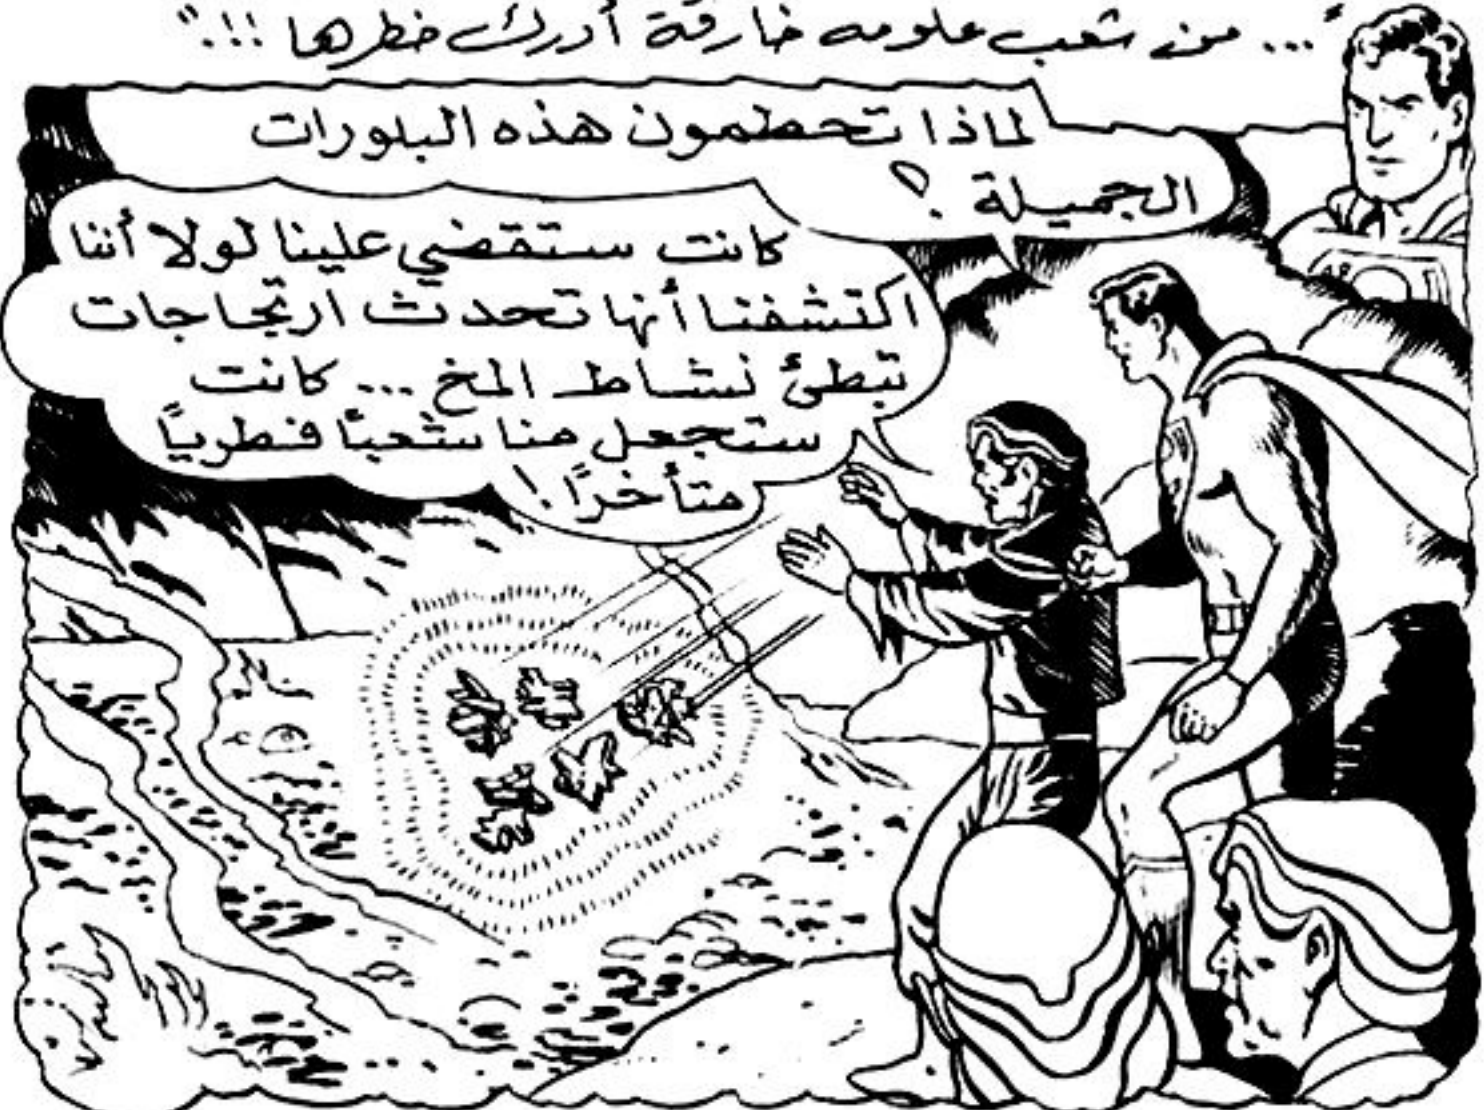 "... من شعب علومه خارقة أدرك خطرها !!!."
لماذا تحطمون هذه البلورات
الجميلة ؟
كانت ستقضي علينا لولا أننا
اكتشفنا أنها تحدث ارتجاجات
تبطئ نشاط المخ ... كانت
ستجعل منا شعبًا فطريًا
متأخرًا !